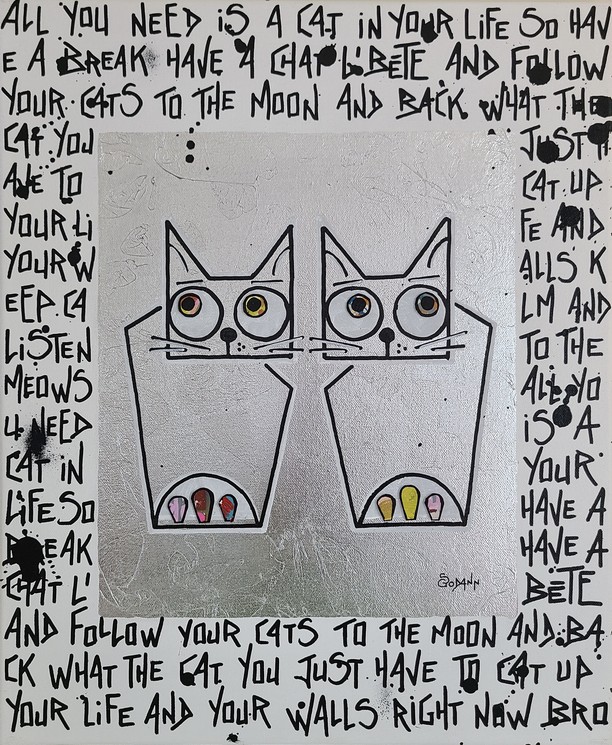 ALL YOU NEED iS A CAT iN YOUR LiFE SO HAV
E A BREAK HAVE A CHAT L'BETE AND FOLLOW
YOUR CATS TO THE MOON AND BACK WHAT THE
CAT YOU JUST H
AVE TO CAT UP
YOUR Li FE AND
YOUR W ALLS K
EEP CA LM AND
LiSTEN TO THE
MEOWS ALL YO
U NEED iS A
CAT iN YOUR
LiFE SO HAVE A
BREAK HAVE A
CHAT L' BËTE
AND FOLLOW YOUR CATS TO THE MOON AND BA
CK WHAT THE CAT YOU JUST HAVE TO CAT UP
YOUR LiFE AND YOUR WALLS RiGHT NOW BRO
SGODANN